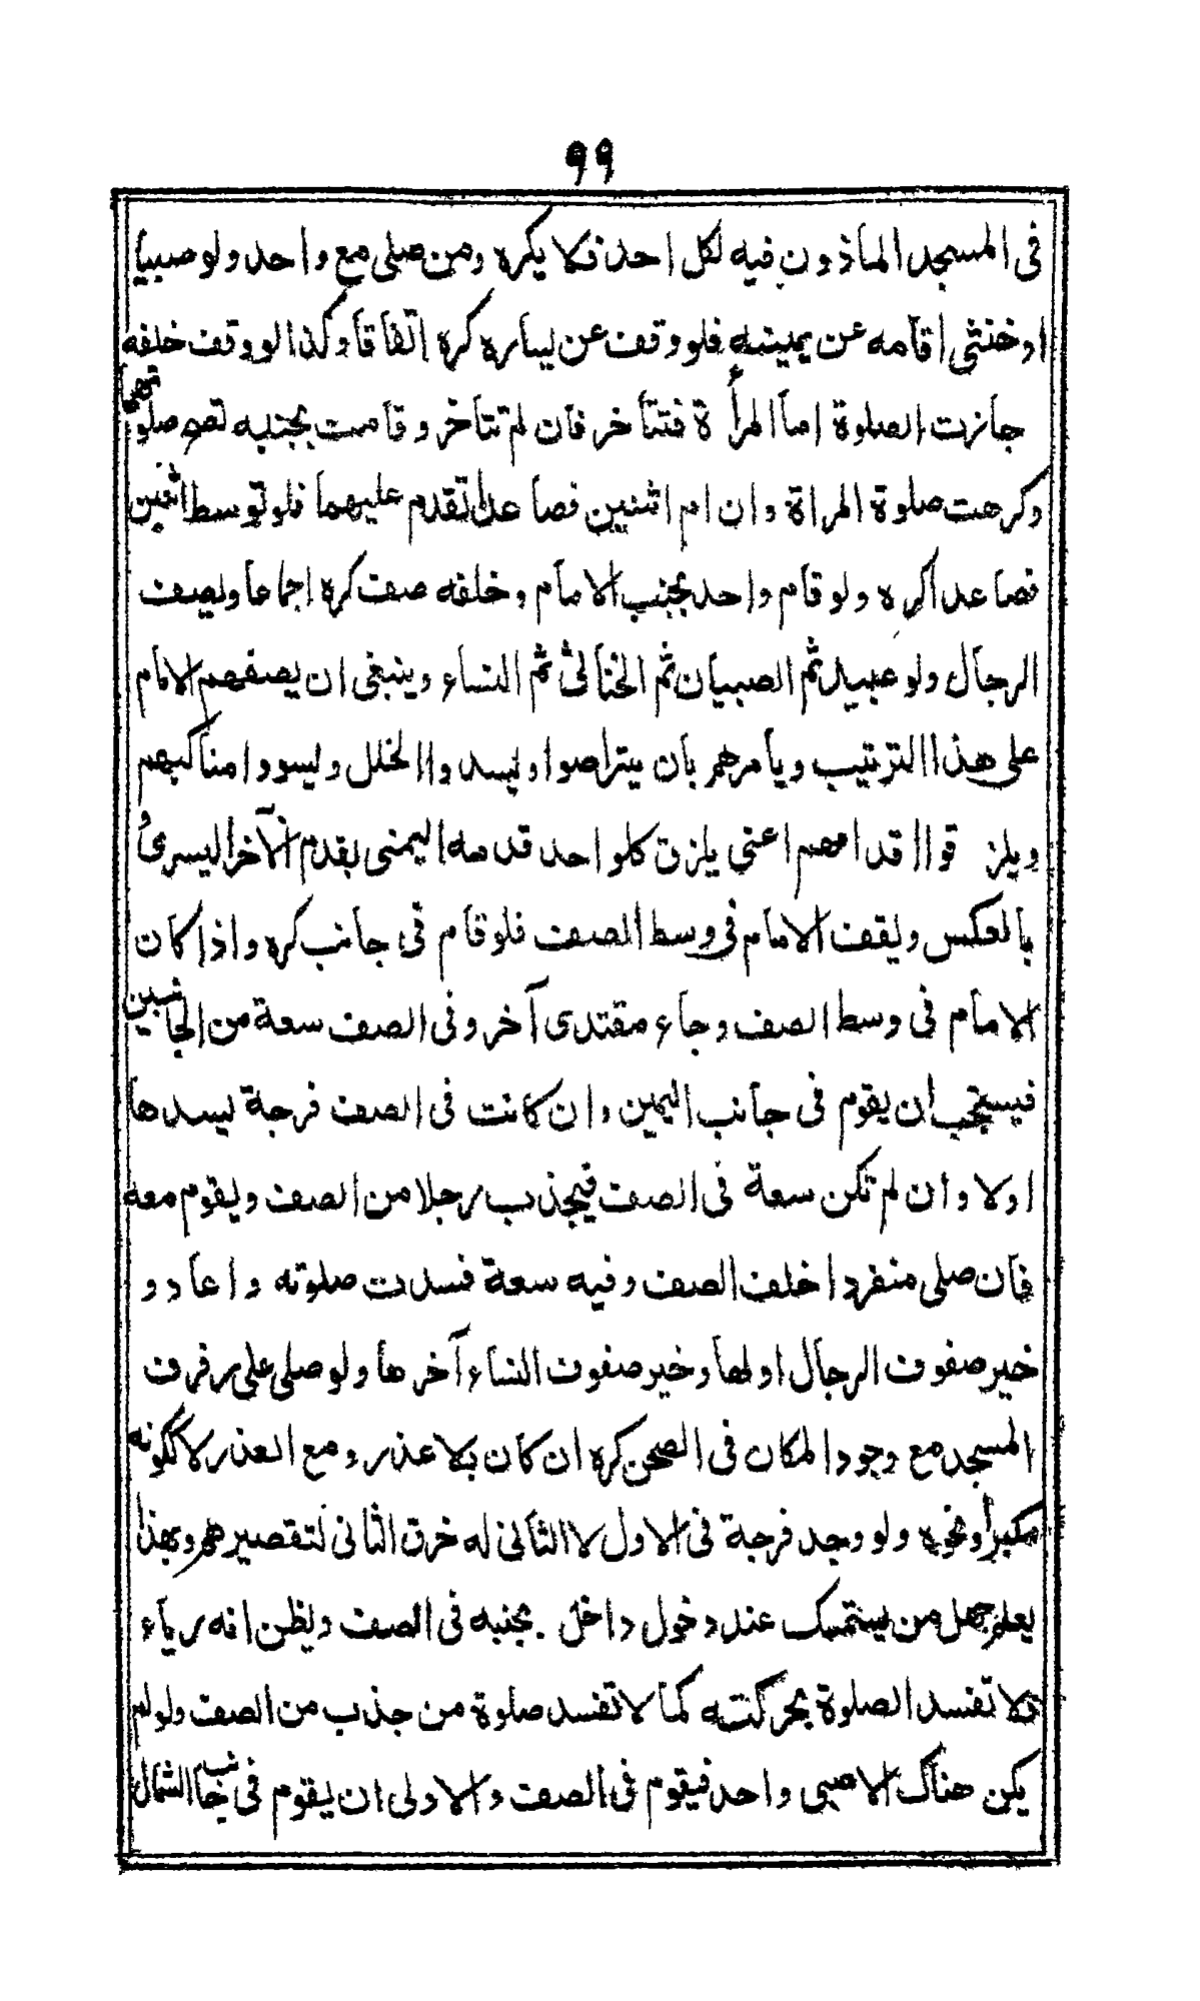 ٩٩
فى المسجد الماذون فيه لكل احد فلا يكره ومن صلى مع واحد ولو صبيا
او خنثى اقامه عن يمينه فلو وقف عن يساره كره اتفاقا وكذا لو وقف خلفه
جازت الصلوة اما المرأة فتتأخر فان لم تتأخر وقامت بجنبه تصح صلوتهما
وكرهت صلوة المراة وان ام اثنين فصاعدا تقدم عليهما فلو توسط اثنين
فصاعدا كره ولو قام واحد بجنب الامام وخلفه صف كره اجماعا ويصف
الرجال ولو عبيدا ثم الصبيان ثم الخناثى ثم النساء وينبغى ان يصفهم الامام
على هذا الترتيب ويأمرهم بان يتراصوا ويسدوا الخلل ويسووا مناكبهم
ويلزقوا اقدامهم اعنى يلزق كلواحد قدمه اليمنى بقدم الآخر اليسرى و
بالعكس ويقف الامام فى وسط الصف فلو قام فى جانب كره واذا كان
الامام فى وسط الصف وجاء مقتدى آخر وفى الصف سعة من الجانبين
فيستحب ان يقوم فى جانب اليمين وان كانت فى الصف فرجة يسدها
اولا وان لم تكن سعة فى الصف فيجذب رجلا من الصف ويقوم معه
فان صلى منفردا خلف الصف وفيه سعة فسدت صلوته واعاد و
خير صفوف الرجال اولها وخير صفوف النساء آخرها ولو صلى على رفرف
المسجد مع وجود المكان فى الصحن كره ان كان بلا عذر ومع العذر لا ككونه
مكبرا ونحوه ولو وجد فرجة فى الاول لا الثانى له خرق الثانى لتقصيرهم وبهذا
يعلم جهل من يستمسك عند دخول داخل بجنبه فى الصف ويظن انه رياء
ولا تفسد الصلوة بحركته كما لا تفسد صلوة من جذب من الصف ولو لم
يكن هناك الا صبى واحد فيقوم فى الصف والاولى ان يقوم فى جانب الشمال